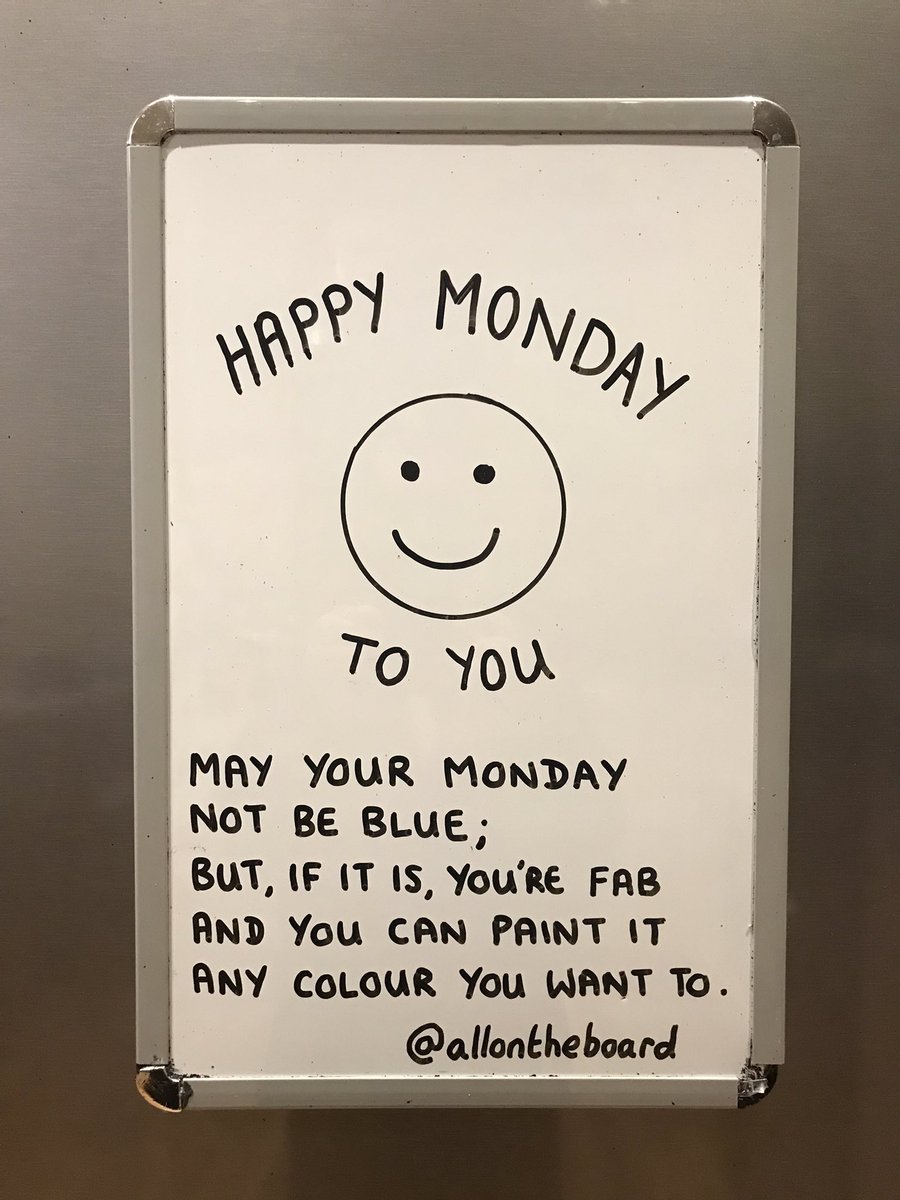 HAPPY MONDAY
TO YOU
MAY YOUR MONDAY
NOT BE BLUE;
BUT, IF IT IS, YOU'RE FAB
AND YOU CAN PAINT IT
ANY COLOUR YOU WANT TO.
@allontheboard